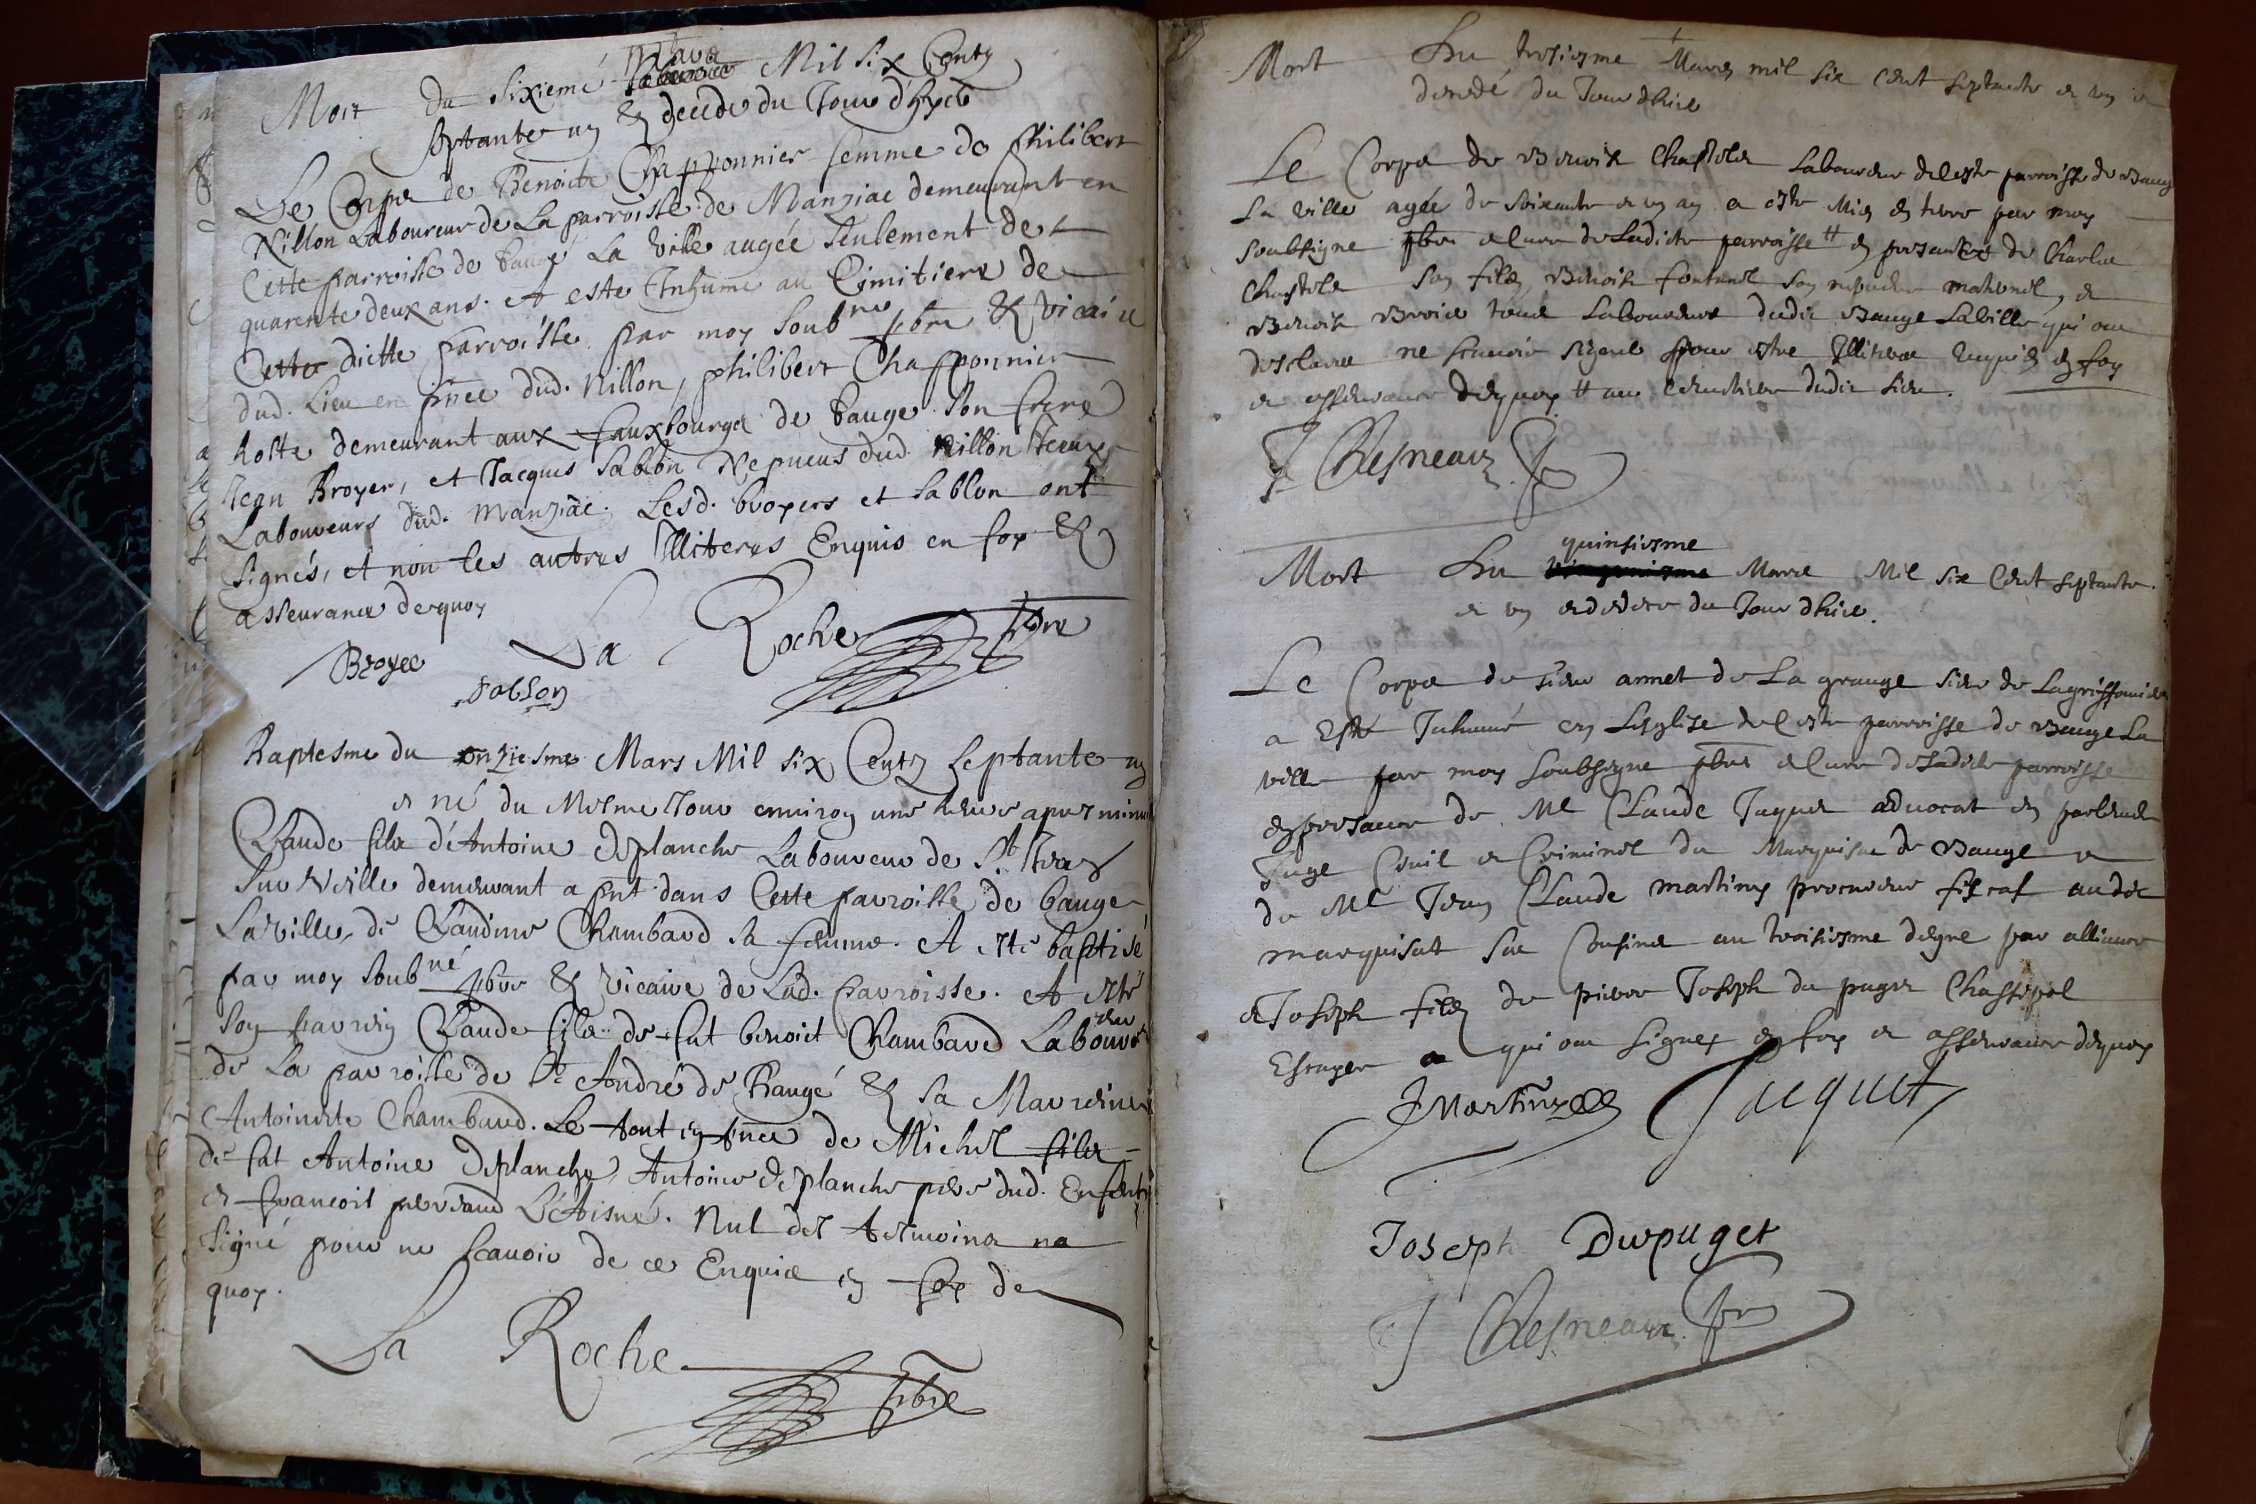 Mort du sixieme Mars Mil six Centz
septante un & decede du Jour d'hyer
Le Corps de Benoite Chapponnier femme de Philibert
Nillon Laboureur de La parroisse de Manziac demeurant en
Cette parroisse de Baugé La Ville aagée seulement de
quarente deux ans. A esté Inhumé au Cimitiere de
Cette dictte parroisse par moy soub.né pbre & vicaire
dud. Lieu en pnce dud. Nillon, philibert Chapponnier
hoste demeurant aux fauxbourgs de Bauge son frere
Jean Broyer, et Jacques Sablon Nepueus dud. Nillon tous
Laboureurs dud. Manziac. Lesd. broyers et Sablon ont
signés, et non les autres Illiteres Enquis en foy &
asseurance dequoy
La Roche pbre
Broyer
Sablon
Baptesme du onziesme Mars Mil six Centz septante un
et né du Mesme Jour environ une heure apres minuit
Claude fils d'Antoine Deplanche Laboureur de St Jean
sur Veille demeurant a pnt dans Cette parroisse de bauge
La Ville, & de Claudine Chambard sa femme. A esté baptisé
par moy soub.né pbre & vicaire de Lad. parroisse. A esté
son parrein Claude fils de fut benoict Chambard Laboureur
de La parroisse de St André de Baugé & sa Marreine
Antoinette Chambard. Le tout en pnce de Michel fils
de fut Antoine Deplanche, Antoine Deplanche pere dud. Enfent
et francois L'Aisné. Nul des tesmoins na
signé pour ne scauoir de ce Enquis en foy de
quoy.
La Roche pbre
Mort Du troisiesme Mars mil six cent septante et un et
decedé du Jour d'hier
Le Corps de Benoist Chastelet Laboureur de ceste parroisse de Bauge
La Ville agée de soixante et un an a esté Mis en terre par moy
soubsigne pbre et Cure de Ladicte parroisse # en presance de Charles
Chastelet son fils, Benoist fontanel son nepueu maternel, et
Benoist tous Laboureurs dudit Bauge La Ville qui ont
desclaré ne scauoir signer pour estre Illiteres Requis en foy
et asseurance dequoy # au cemetiere dudit lieu.
J Chesneau pbre
Mort Du quinsiesme Mars Mil six Cent septante
et un et decede du Jour d'hier.
Le Corps de sieur annet de La grange sieur de
a Esté Inhumé en Lesglise de Ceste parroisse de Bauge La
ville par moy soubsigne pbre et Cure de Ladicte parroisse
en presance de Me Claude Jaquet aduocat en parlement
Juge Ciuil et Criminel du Marquisat de Bauge et
de Me Jean Claude martiny procureur fiscal audit
marquisat ses Cousins au troisiesme degré par alliance
et Joseph fils de pierre Joseph du puget Chassepol
Escuyer qui ont signez en foy et asseurance dequoy
J Martiny Jacquet
Joseph Dupuget
J Chesneau pbre